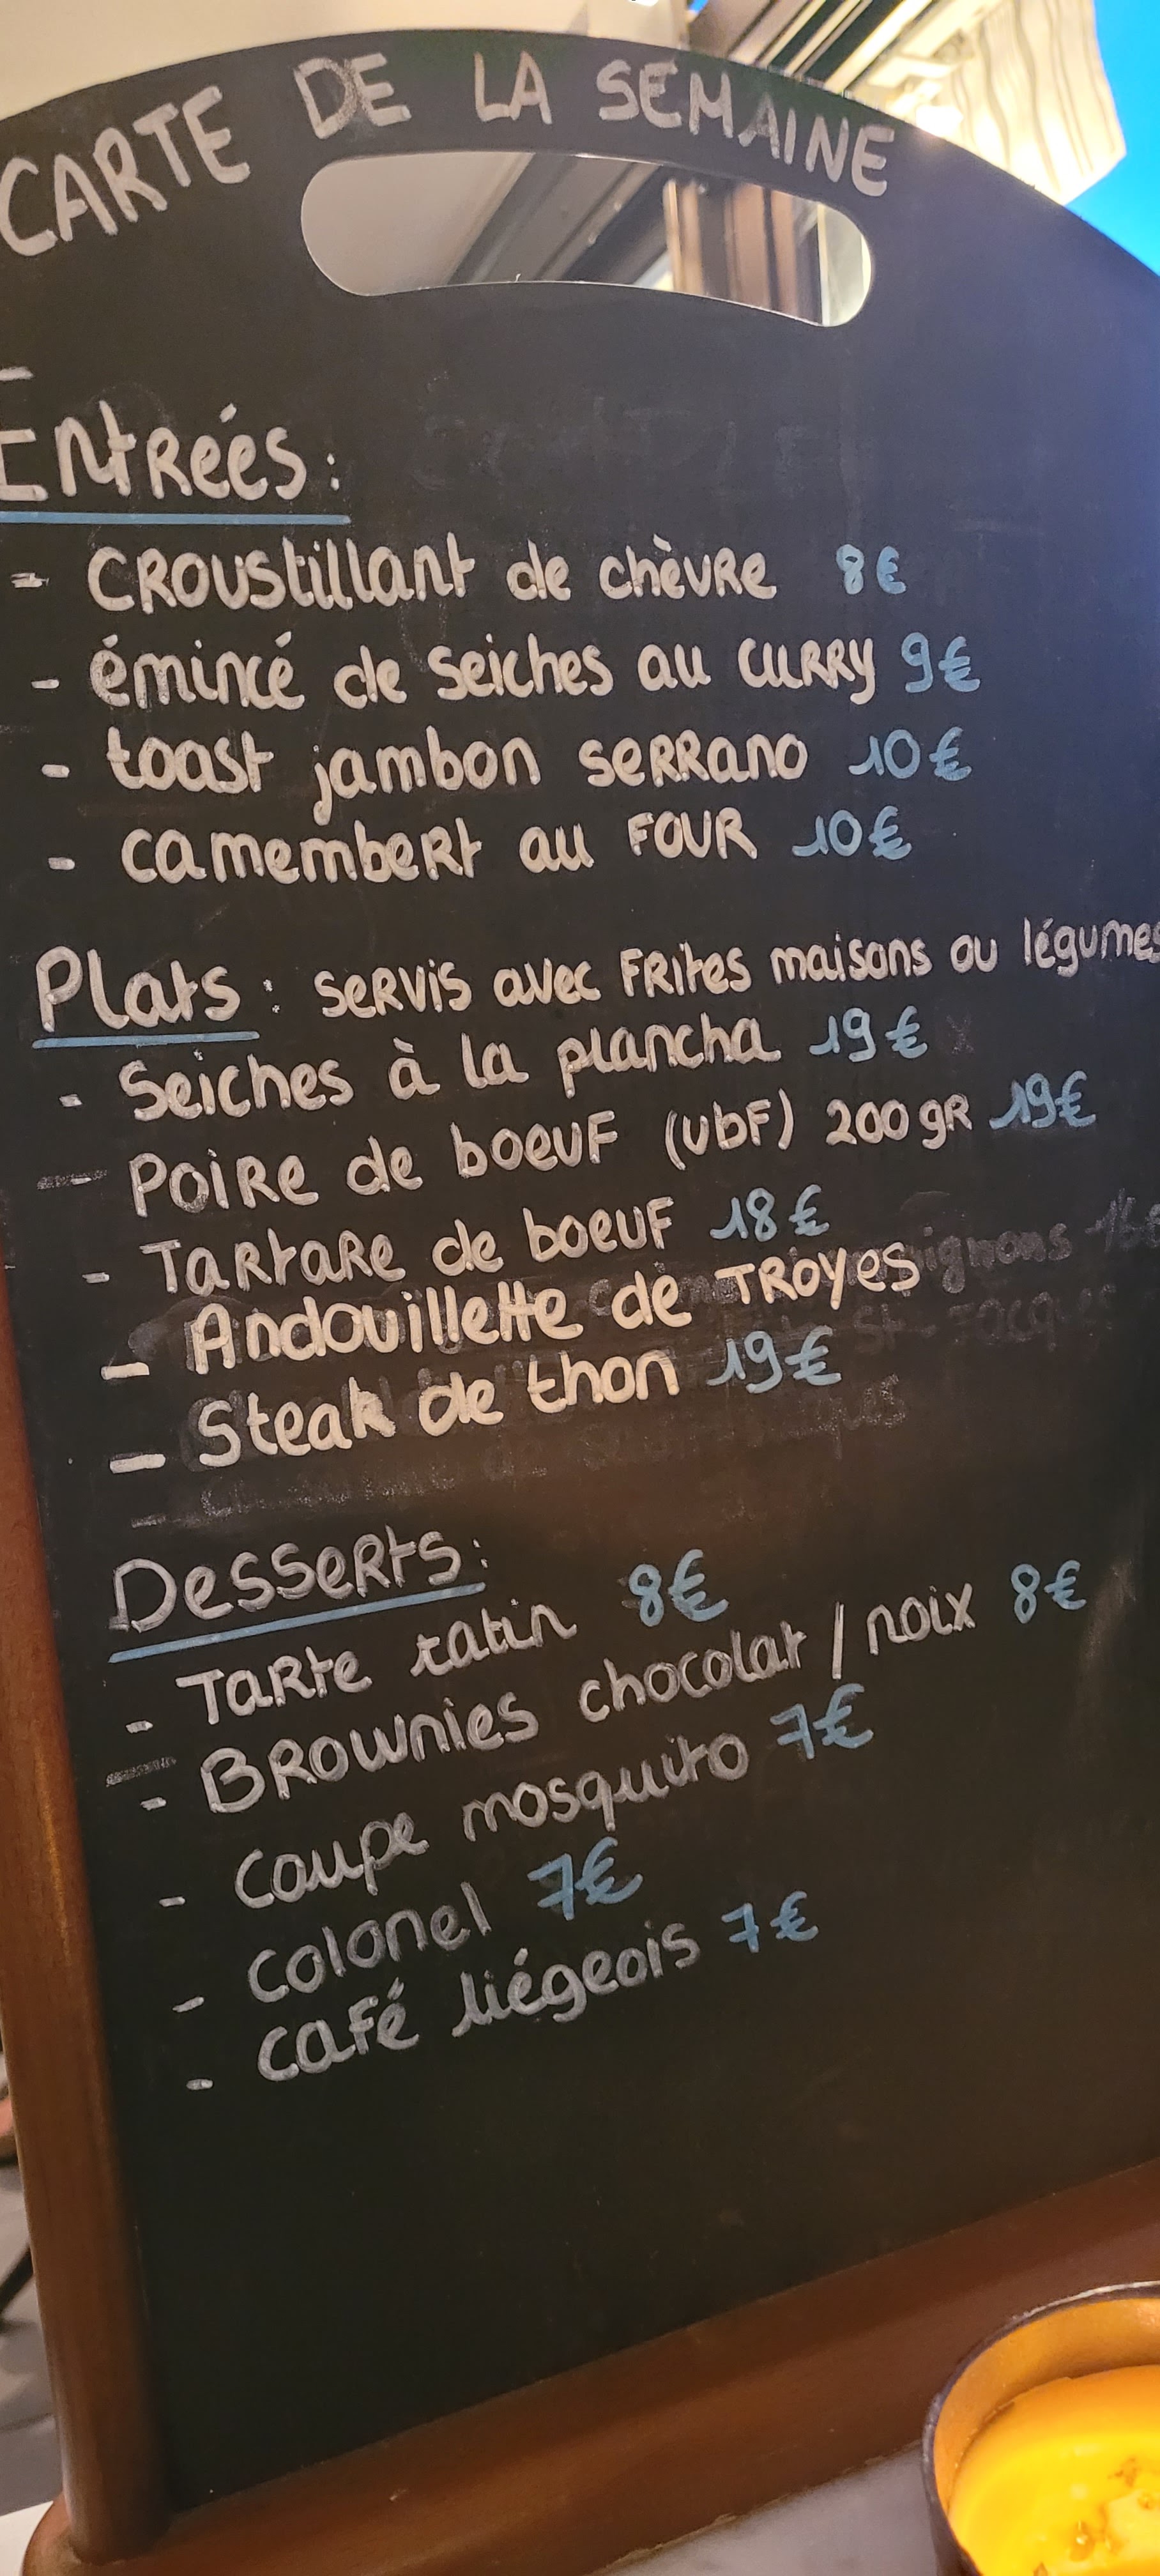 CARTE DE LA SEMAINE
Entrées :
- Croustillant de chèvre 8€
- émincé de seiches au curry 9€
- toast jambon serrano 10€
- camembert au four 10€
Plats : servis avec frites maisons ou légumes
- Seiches à la plancha 19€
- Poire de boeuf (vbf) 200 gr 19€
- Tartare de boeuf 18€
- Andouillette de Troyes
- Steak de thon 19€
Desserts :
- Tarte tatin 8€
- Brownies chocolat / noix 8€
- Coupe mosquito 7€
- Colonel 7€
- Café liégeois 7€